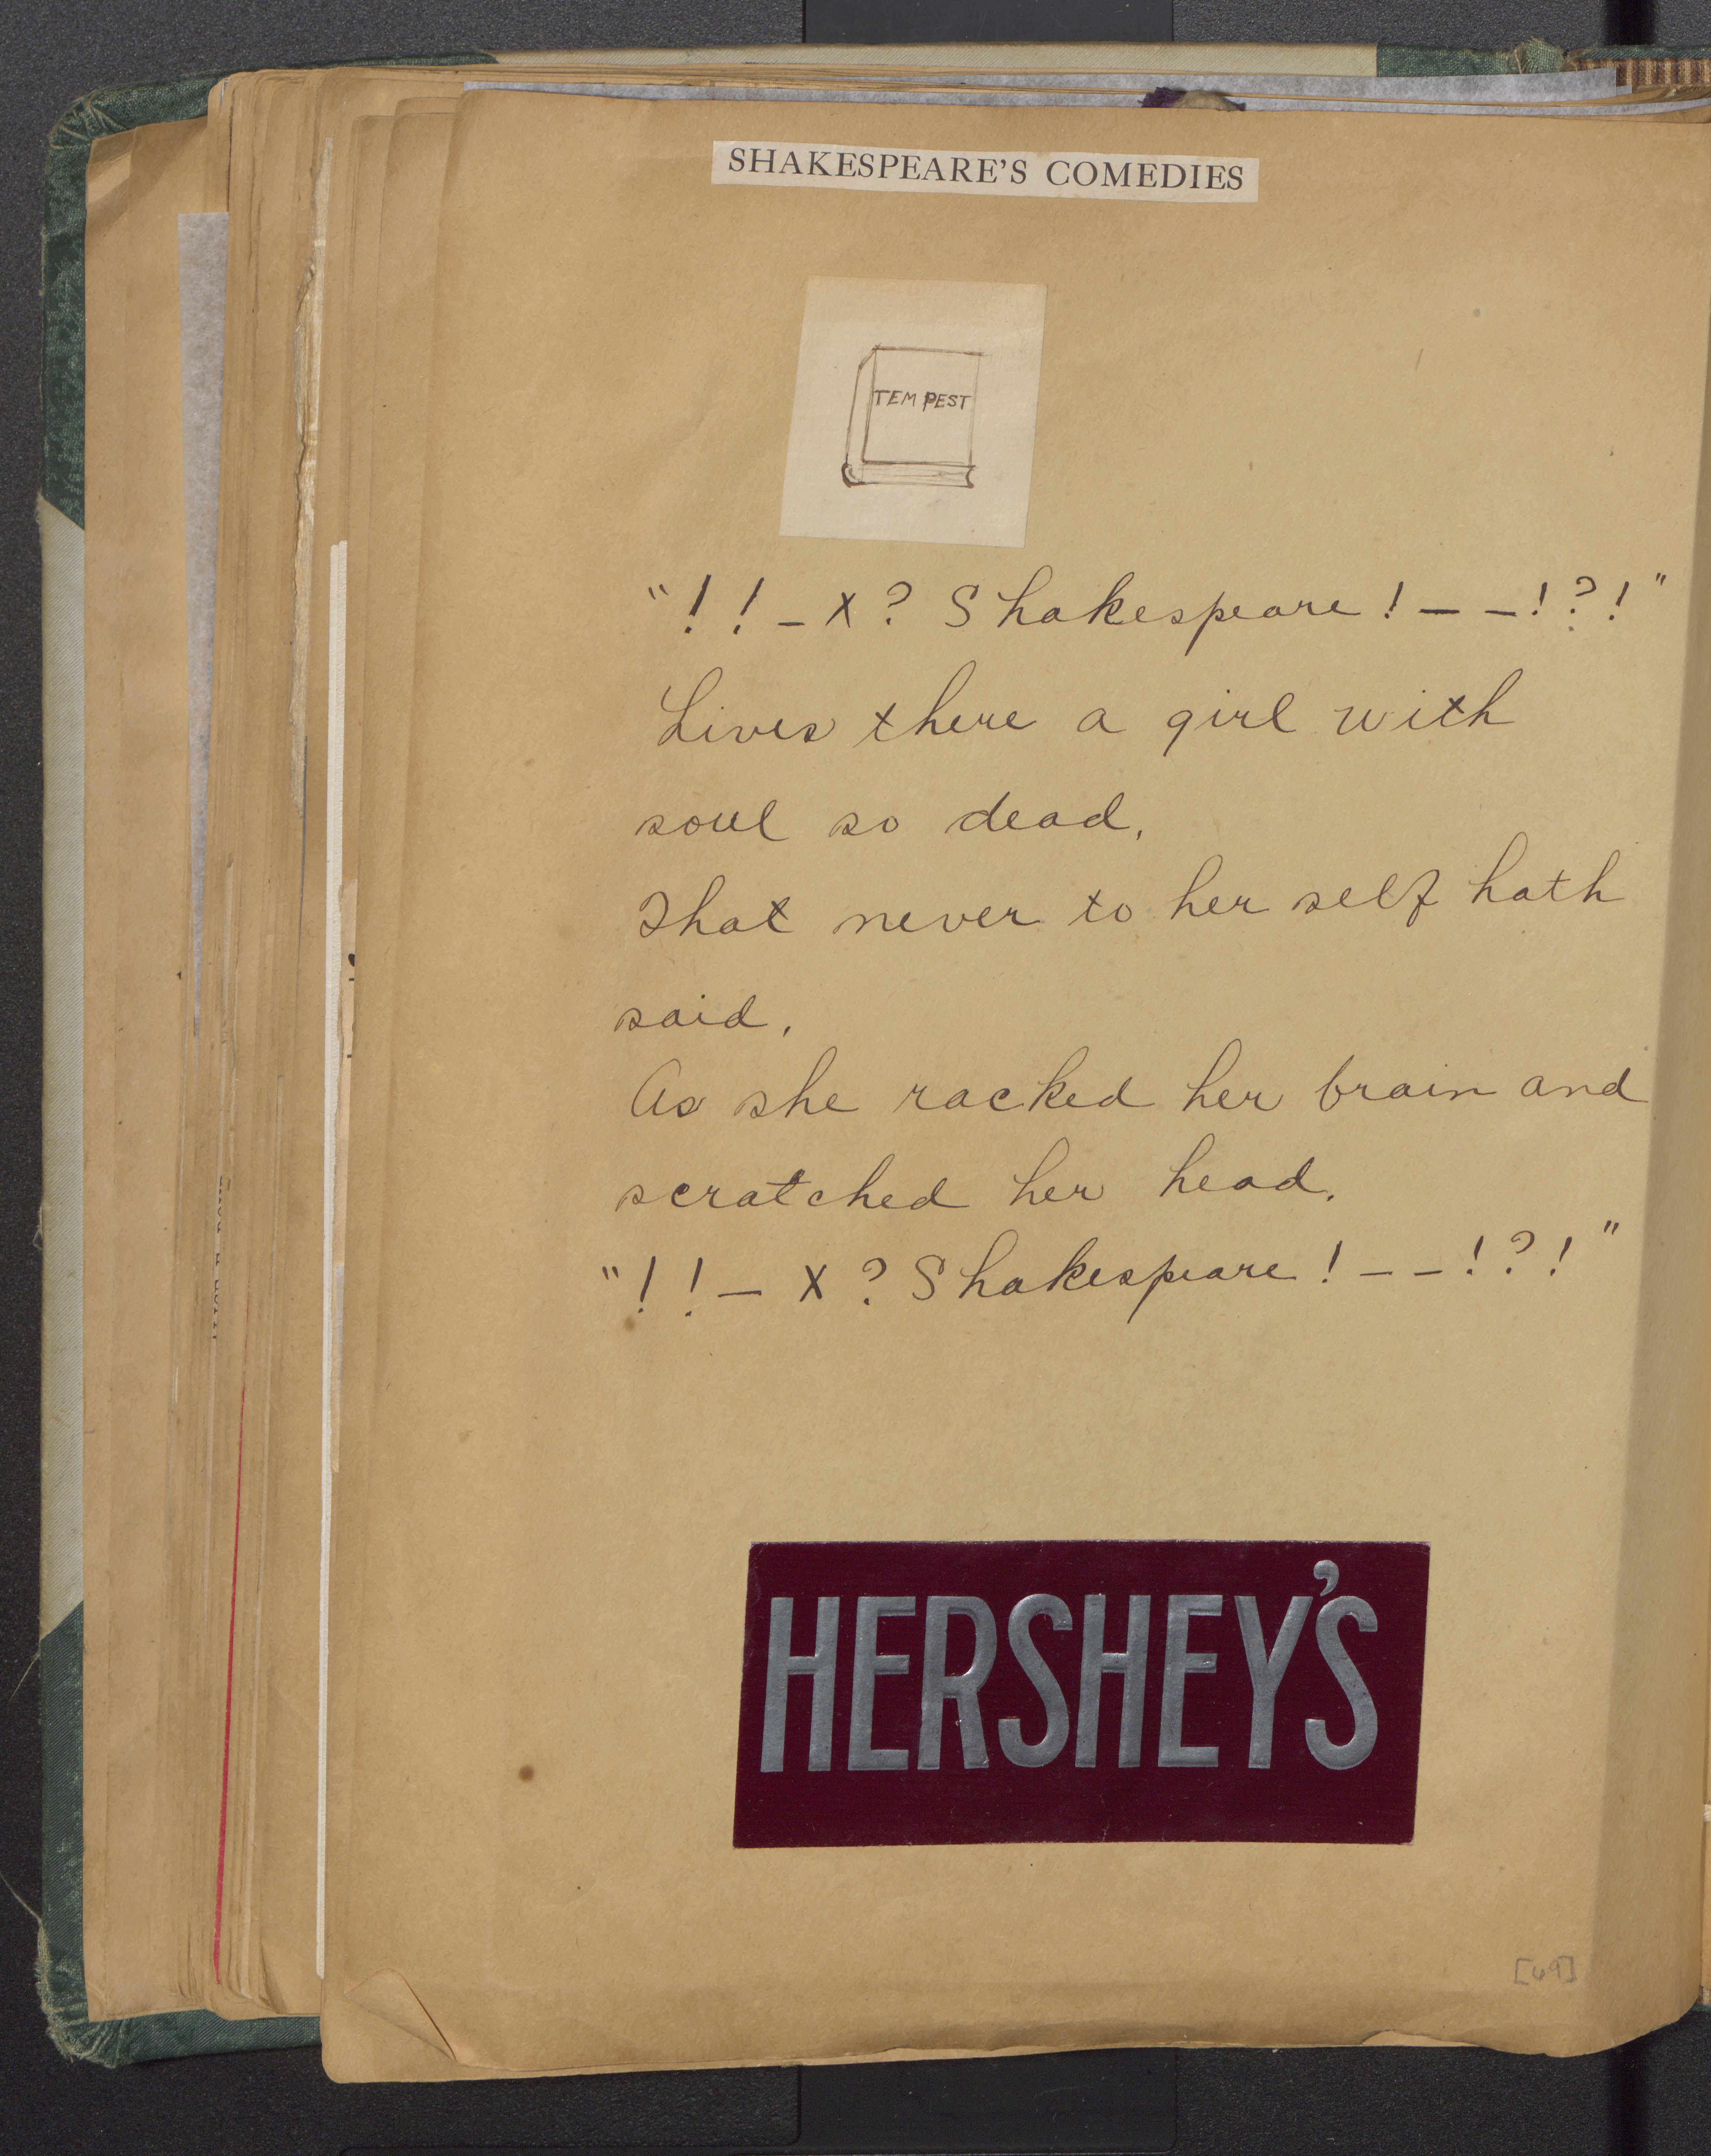 SHAKESPEARE'S COMEDIES
TEMPEST
"!! – X ? Shakespeare! – – !?!"
Lives there a girl with
soul so dead,
That never to her self hath
said,
As she racked her brain and
scratched her head,
"!! – X ? Shakespeare! – – !?!"
HERSHEY'S
[69]